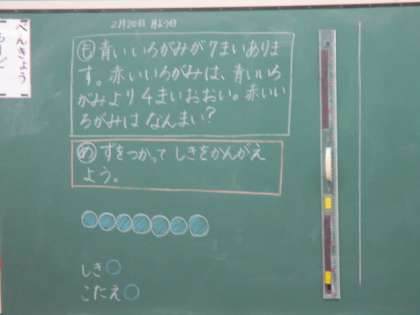 2月20日 月よう日
も 青いいろがみが7まいありま
す。赤いいろがみは、青いいろ
がみより4まいおおい。赤いい
ろがみはなんまい?
め ずをつかって しきをかんがえ
よう。
しき
こたえ
べんきょう